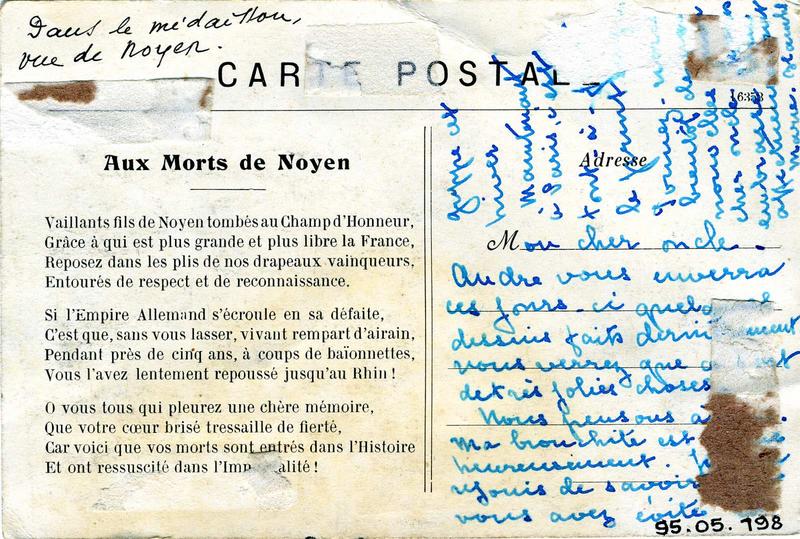 Dans le médaillon,
vue de Noyen.
CARTE POSTALE
Aux Morts de Noyen
Vaillants fils de Noyen tombés au Champ d'Honneur,
Grâce à qui est plus grande et plus libre la France,
Reposez dans les plis de nos drapeaux vainqueurs,
Entourés de respect et de reconnaissance.
Si l'Empire Allemand s'écroule en sa défaite,
C'est que, sans vous lasser, vivant rempart d'airain,
Pendant près de cinq ans, à coups de baïonnettes,
Vous l'avez lentement repoussé jusqu'au Rhin !
O vous tous qui pleurez une chère mémoire,
Que votre cœur brisé tressaille de fierté,
Car voici que vos morts sont entrés dans l'Histoire
Et ont ressuscité dans l'Imm alité !
Adresse
Mon cher oncle.
Andre vous enverra
ces jours-ci quelq
dessins faits derni ement
vous verrez que
de très jolies choses
Nous pensons a
ma bronchite est
heureusement.
rejouis de savoir
vous avez évité
grippe et
hiver
Maintenant
à Paris c'est
tout à
le
bientôt de
nouvelles
cher oncle
embrasse
affectueu
95.05.798